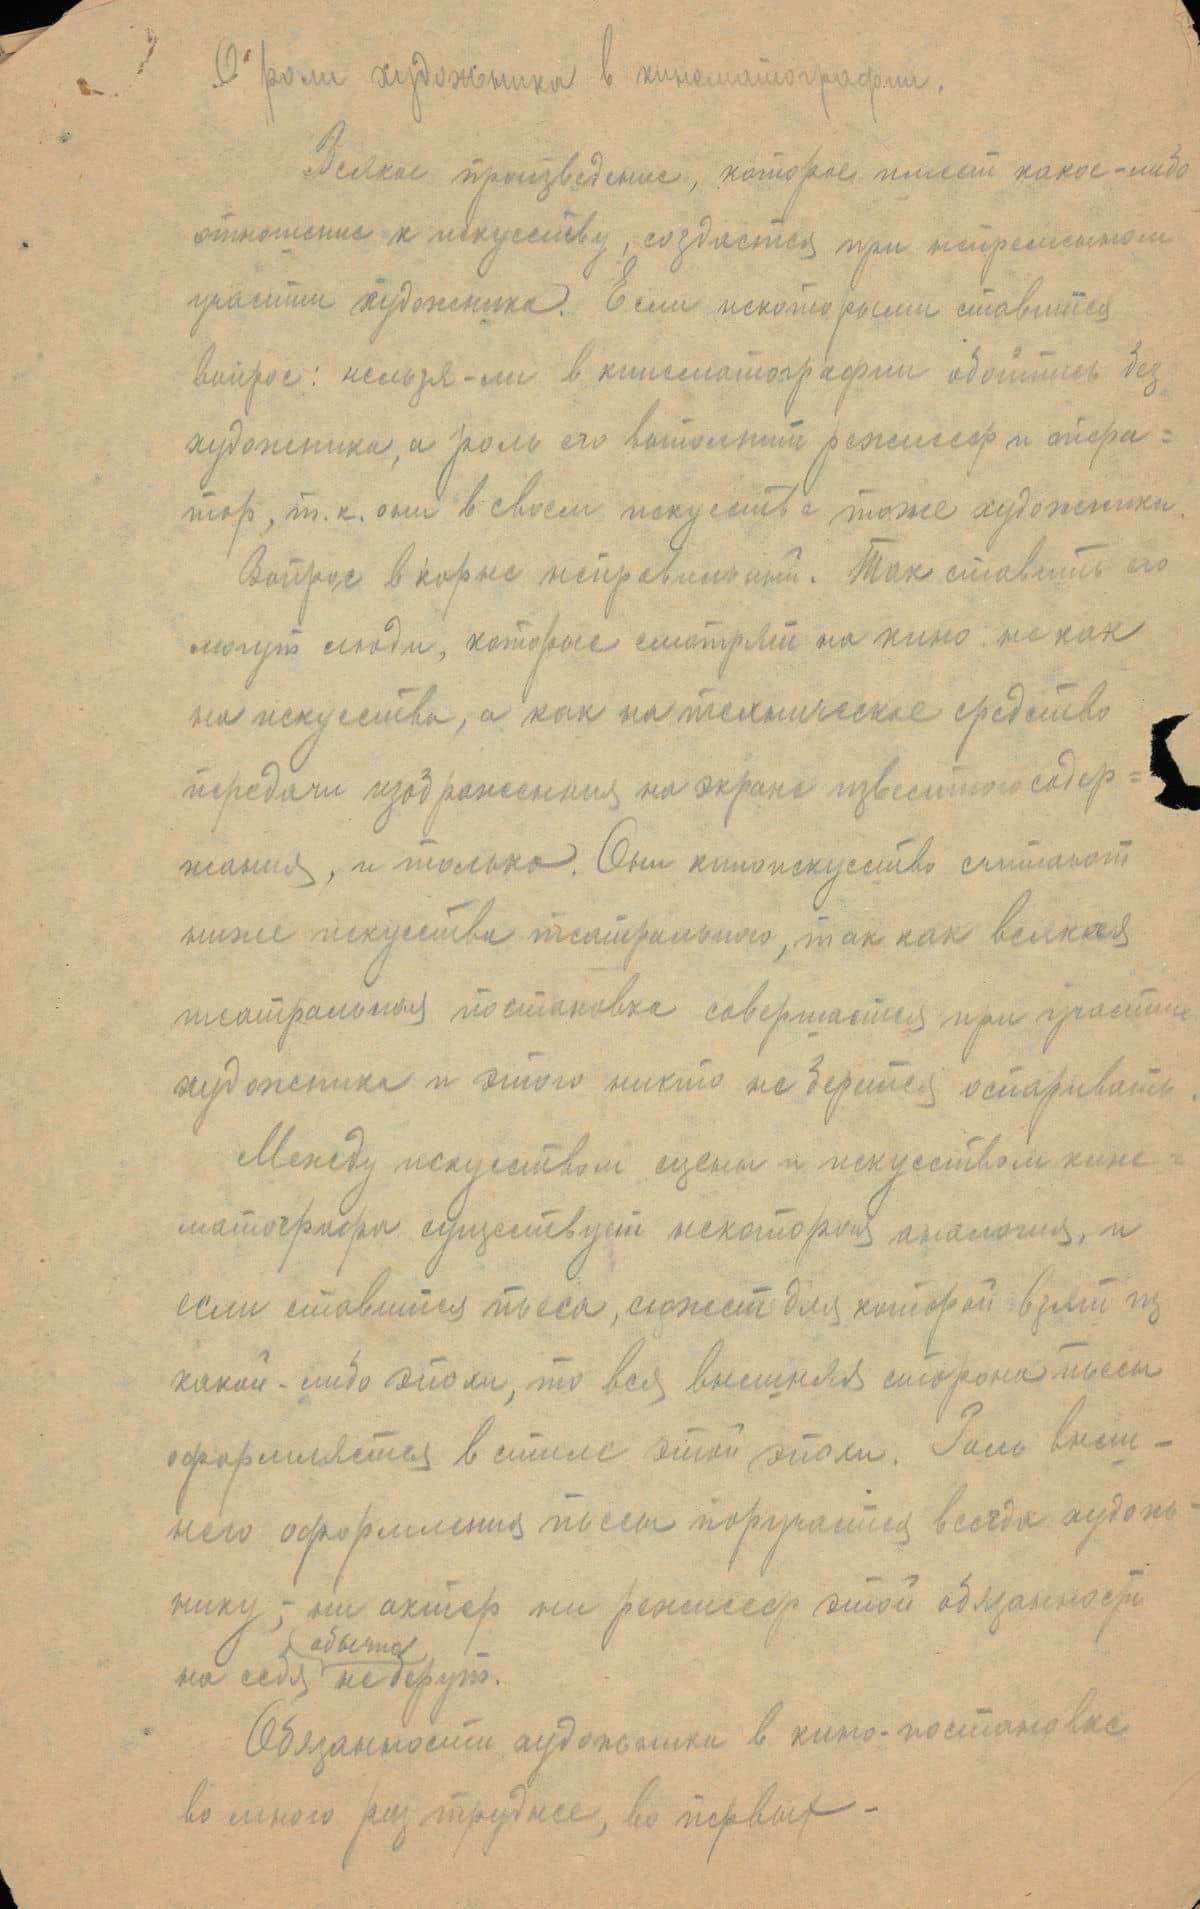 О роли художника в кинематографии.
Всякое произведение, которое имеет какое-либо
отношение к искусству, создается при непременном
участии художника. Если некоторыми ставится
вопрос: нельзя-ли в кинематографии обойтись без
художника, а роль его выполнит режиссер и опера=
тор, т.к. они в своем искусстве тоже художники.
Вопрос в корне неправильный. Так ставить его
могут люди, которые смотрят на кино не как
на искусство, а как на техническое средство
передачи изображения на экране известного содер=
жания, и только. Они киноискусство считают
ниже искусства театрального, так как всякая
театральная постановка совершается при участии
художника и этого никто не берется оспаривать.
Между искусством сцены и искусством кине=
матографа существует некоторая аналогия, и
если ставится пьеса, сюжет для которой взят из
какой-либо эпохи, то вся внешняя сторона пьесы
оформляется в стиле этой эпохи. Роль внеш-
него оформления пьесы поручается всегда худож-
нику, - ни актер ни режиссер этой обязанности
на себя обычно не берут.
Обязанности художника в кино-постановке
во много раз труднее, во первых -